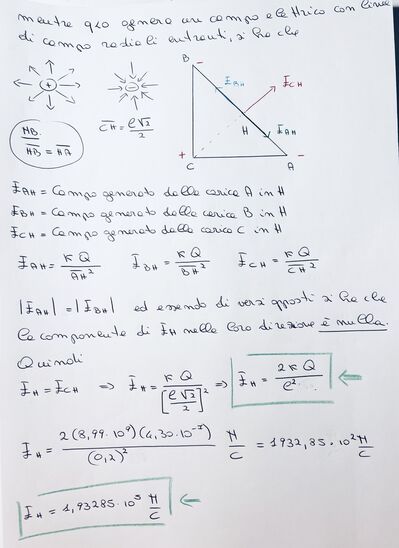 mentre q<0 genera un campo elettrico con linee
di campo radiali entranti, si ha che
+
-
NB.
HB = HA
CH = l√2/2
B -
E BH
E CH
H
E AH
+
C
A -
E AH = Campo generato dalla carica A in H
E BH = Campo generato dalla carica B in H
E CH = Campo generato dalla carica C in H
E AH = K Q / AH² E BH = K Q / BH² E CH = K Q / CH²
|E AH| = |E BH| ed essendo di versi opposti si ha che
la componente di E H nella loro direzione è nulla.
Quindi
E H = E CH ⇒ E H = K Q / [l√2/2]² ⇒ E H = 2 K Q / l² ←
E H = 2(8,99·10⁹)(4,30·10⁻⁷) / (0,2)² N/C = 1932,85·10² N/C
E H = 1,93285·10⁵ N/C ←